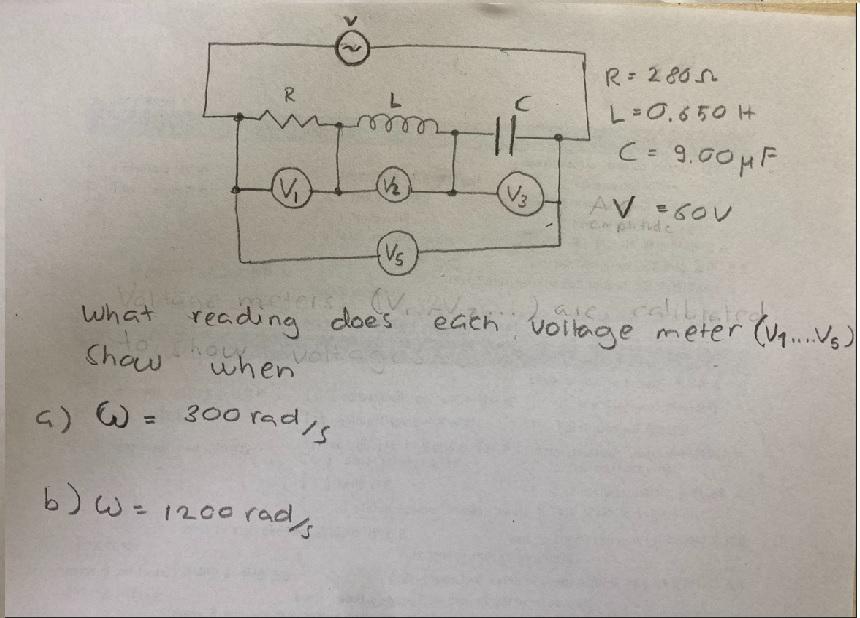 V
R
L
C
R = 280Ω
L = 0.650 H
C = 9.00 μF
V = 60V
V₁
V₂
V₃
V₅
What reading does each voltage meter (V₁....V₅)
Show when
a) ω = 300 rad/s
b) ω = 1200 rad/s